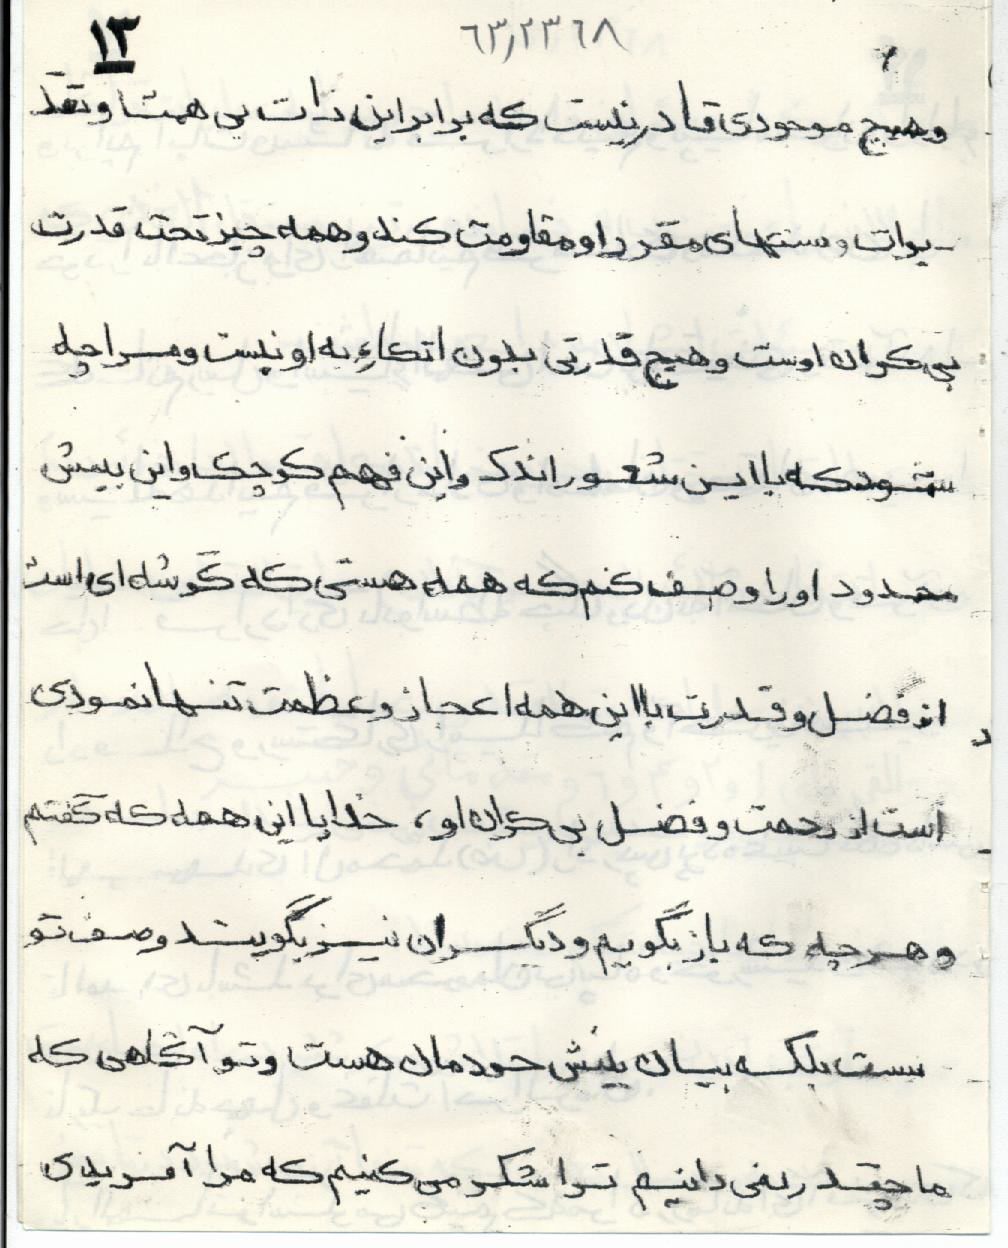 ۱۳
۶۳٫۲۳۶۸
وهیچ موجودی قادر نیست که برابر این ذات بی همتا و تقد
یرات و سنتهای مقرر او مقاومت کند و همه چیز تحت قدرت
بی کران اوست و هیچ قدرتی بدون اتکاءِ به او نیست و مرا چه
شود که با این شعور اندک و این فهم کوچک و این بینش
محدود او را وصف کنم که همه هستی که گوشه ای است
از فضل و قدرت با این همه اعجاز و عظمت تنها نمودی
است از رحمت و فضل بی کران او، خدایا این همه که گفتم
و هر چه که باز بگوییم و دیگران نیز بگویند وصف تو
نیست بلکه بیان بینش خودمان هست و تو آگاهی که
ما چقدر نمی دانیم ترا شکر می کنیم که مرا آفریدی